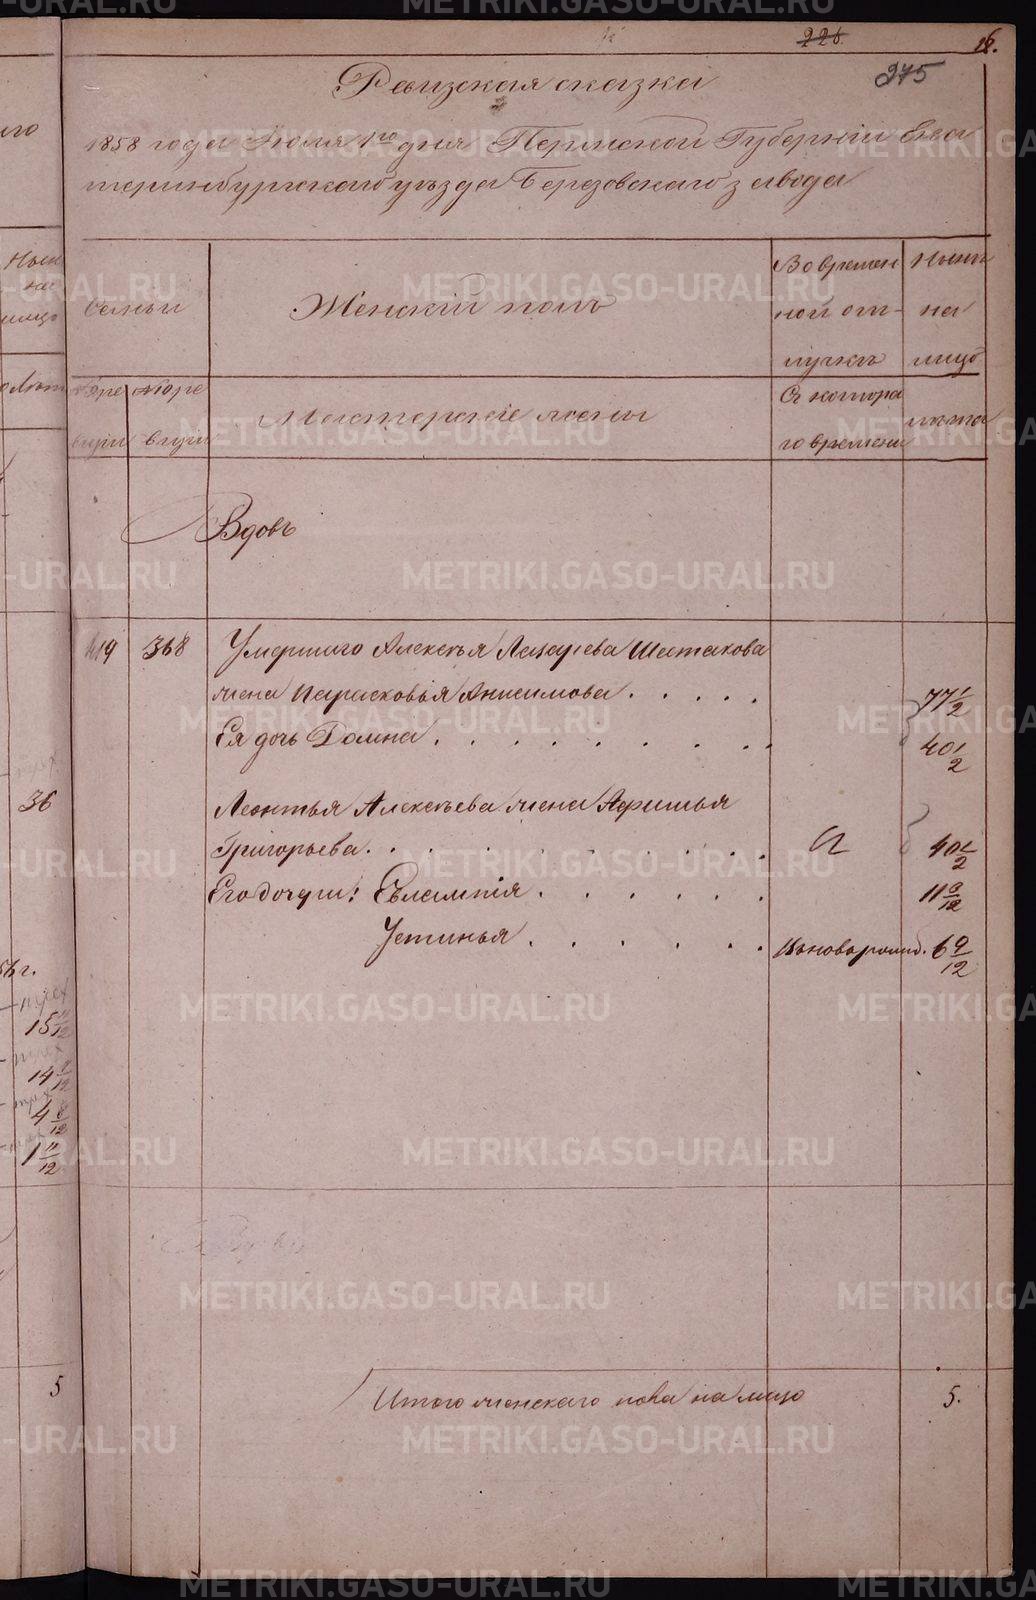 226.
16.
275
Ревизская сказка
1858 года Июля 1го дня Пермской Губернiи Ека
теринбургскаго уѣзда Березовскаго завода
Семьи
Женскiй полъ
Во времен
ной от-
лучкѣ
Нынѣ
на
лицо
Мастерскiе жены
Съ котора
го времени
лѣта
Вдовъ
419 368 Умершаго Алексѣя Лазарева Шестакова
жена Парасковья Анисимова . . . . . 77 1/2
Ея дочь Домна . . . . . . . . . 40 1/2
Леонтья Алексѣева жена Афимья
Григорьева . . . . . . . . . . 40 1/2
Его дочери: Евлампiя . . . . . . 11 9/12
Устинья . . . . . . новорожд. 6 9/12
Итого женскаго пола на лицо 5.
36
56 г.
15 11/12
14
4 8/12
1 11/12
5
METRIKI.GASO-URAL.RU